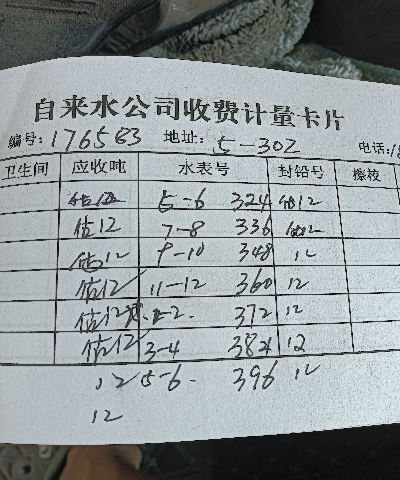 自来水公司收费计量卡片
编号: 176583 地址: 5-302 电话:18
卫生间 应收吨 水表号 封铅号 擦校
估12 5-6 324 估12
估12 7-8 336 估12
估12 9-10 348 12
估12 11-12 360 12
估12 1-2. 372 12
估12 3-4 384 12
12 5-6- 396 12
12